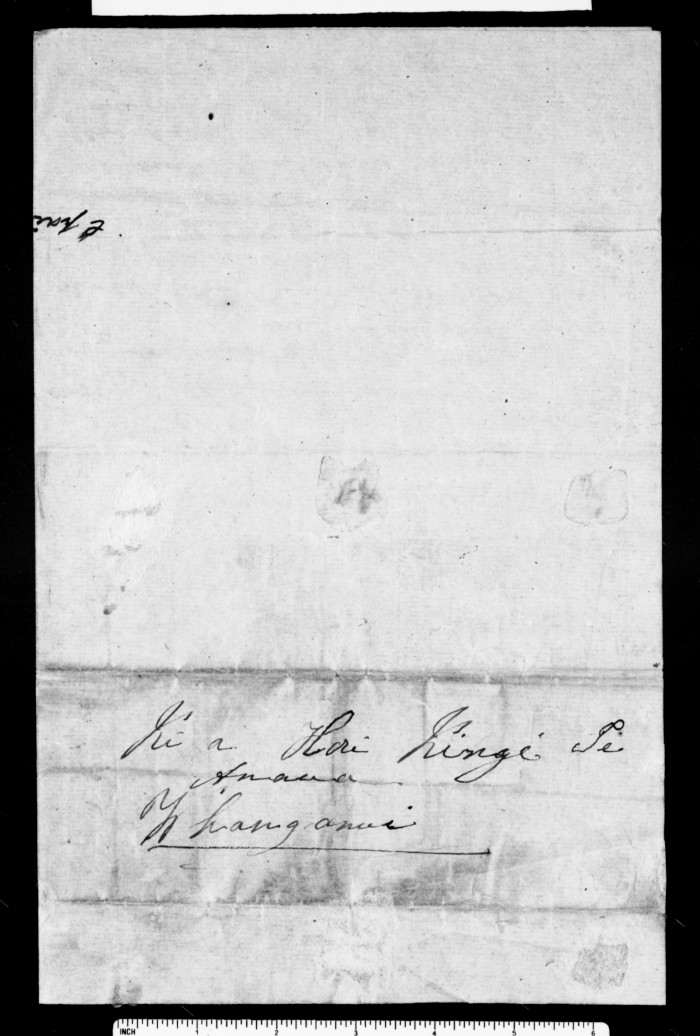 Ki a Hori Kingi Te
Anaua
Whanganui
INCH 1 2 3 4 5 6